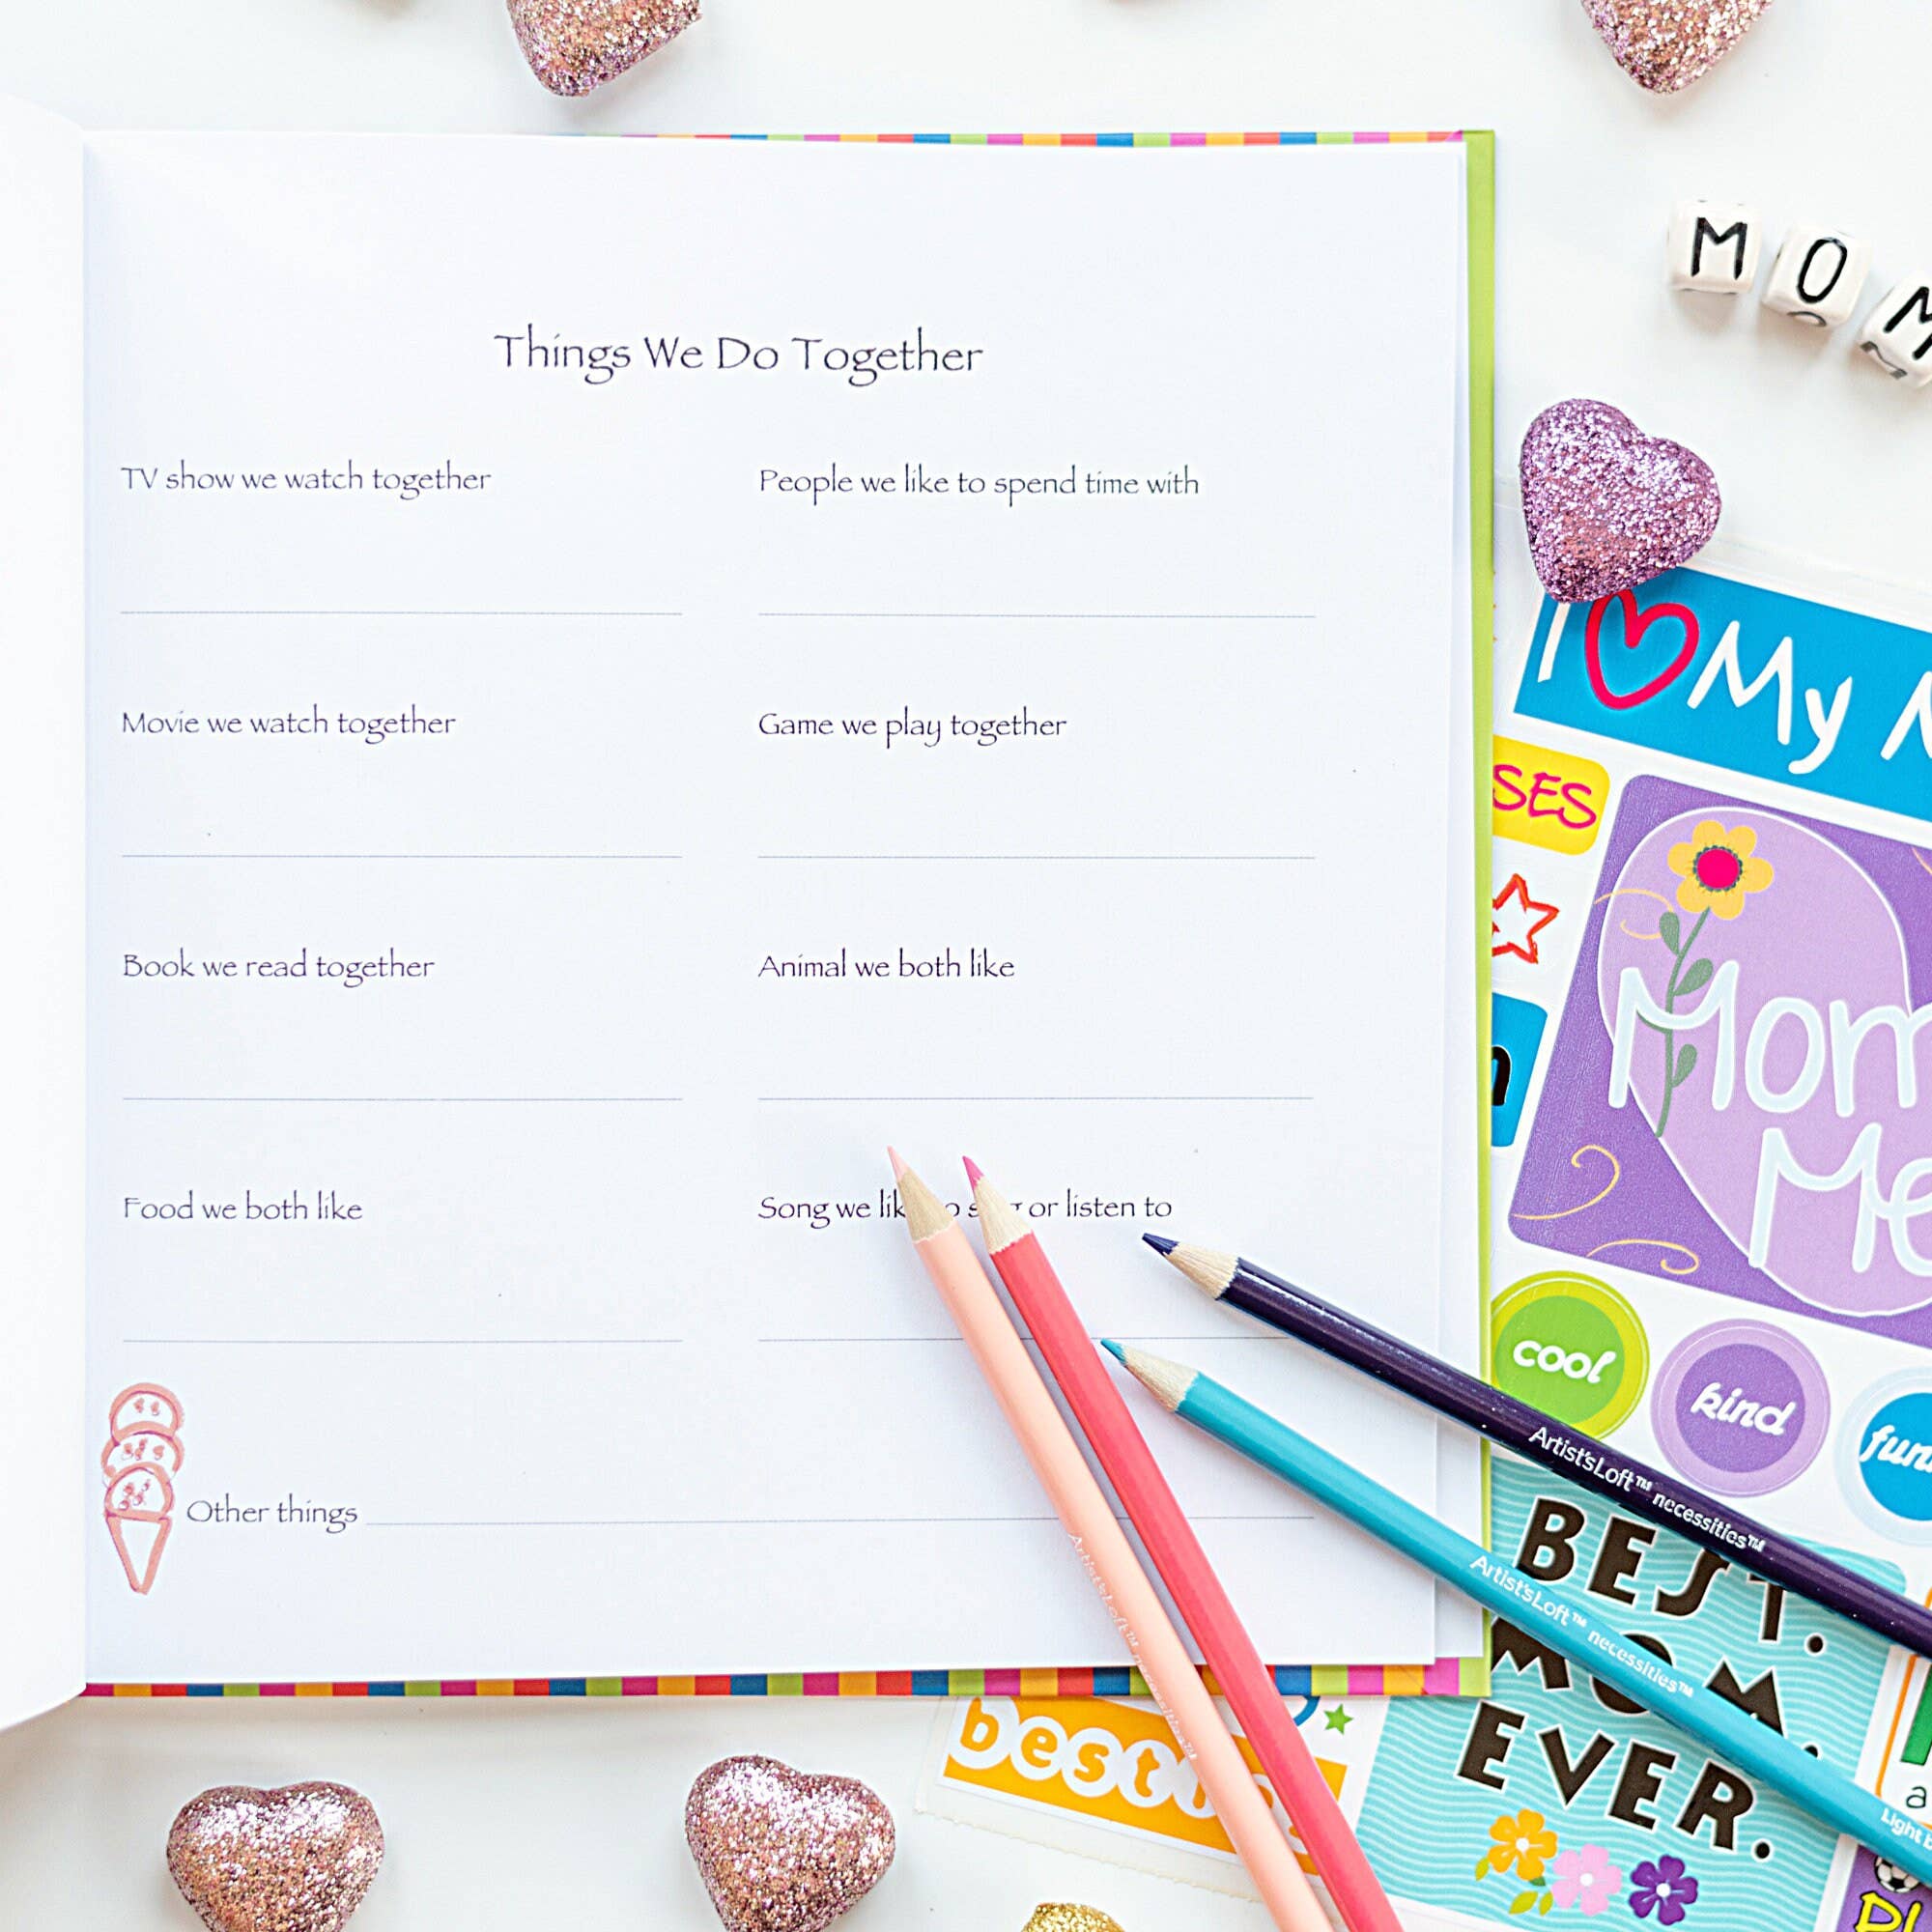 Things We Do Together
TV show we watch together
People we like to spend time with
Movie we watch together
Game we play together
Book we read together
Animal we both like
Food we both like
Song we or listen to
Other things
MOM
I My
SES
Mom
Me
cool
kind
fun
BEST.
MOM.
EVER.
best
Artist'sLoft™ necessities™
Artist'sLoft™ necessities™
Light
Artist'sLoft™ necessities™
a